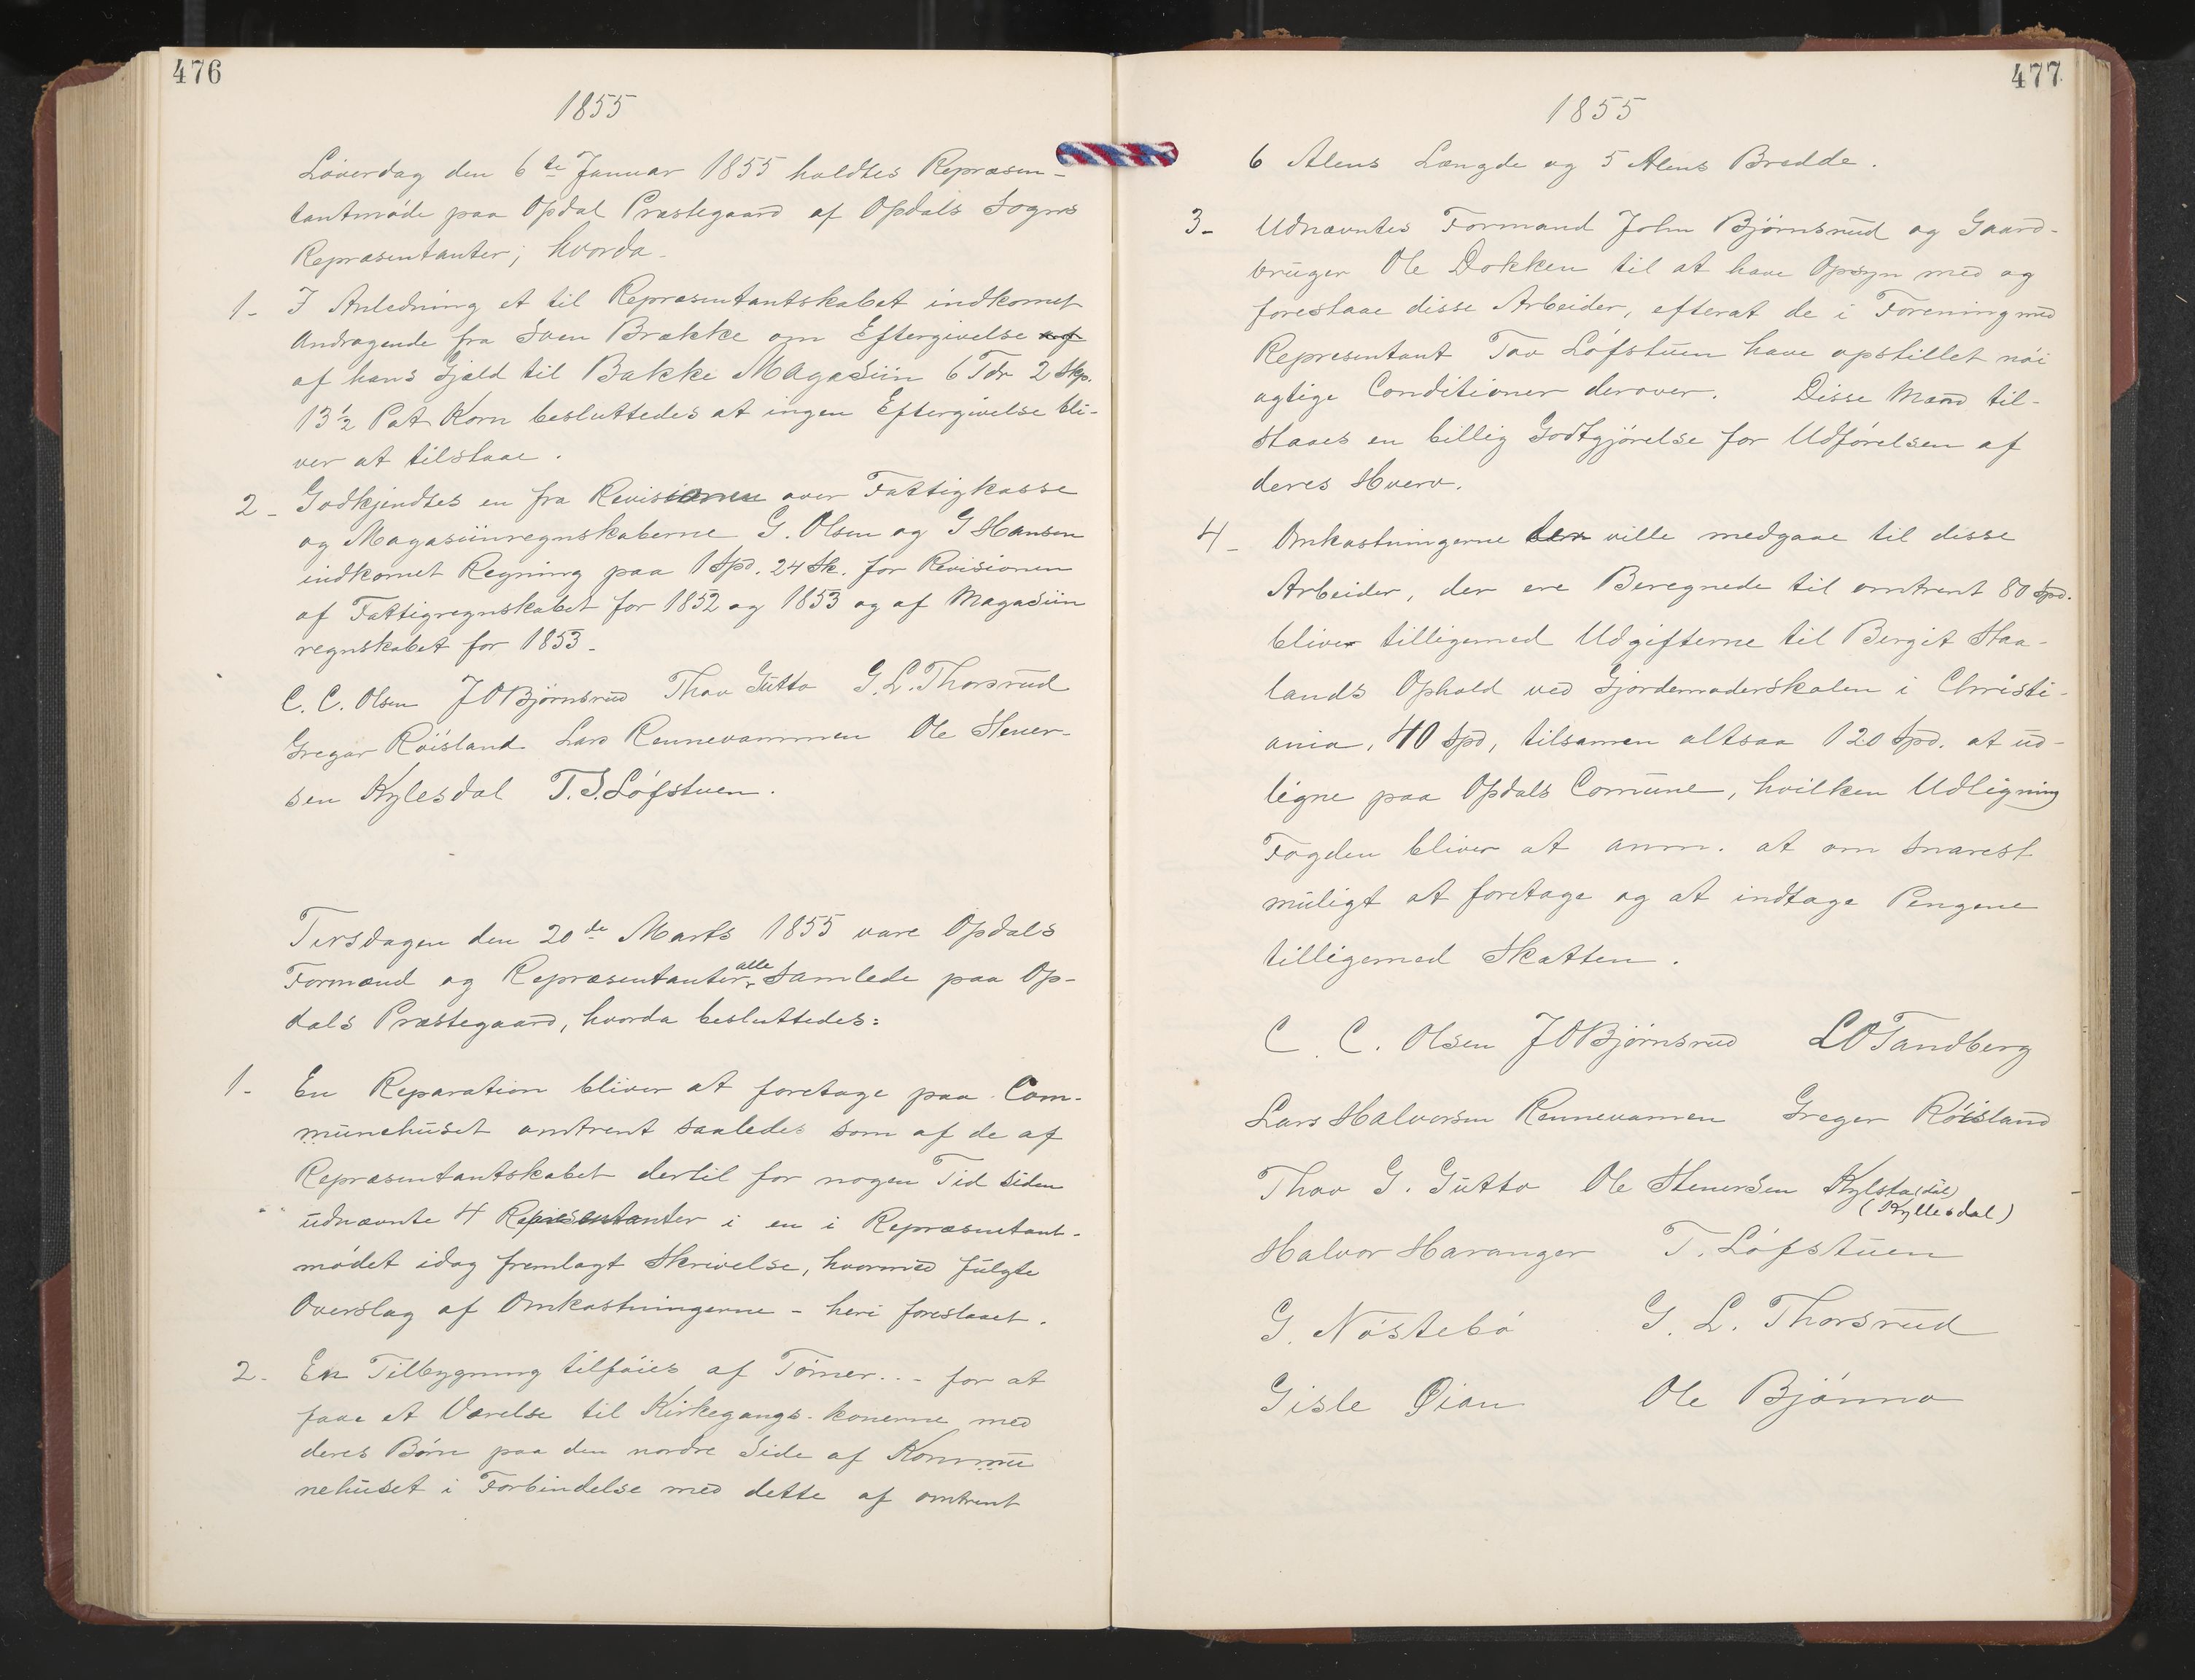 476
1855
Løverdag den 6te Januar 1855 holdtes Repræsen-
tantmøde paa Opdal Præstegaard af Opdals Sogns
Repræsentanter; hvorda-
1- I Anledning et til Repræsentantskabet indkomet
Andragende fra Sven Brække om Eftergivelse af
af hans Gjæld til Bakke Magasiin 6 Tdr 2 Skp.
13 1/2 Pot Korn besluttedes at ingen Eftergivelse bli-
ver at tilstaae.
2- Godkjendtes en fra Revisionen over Fattigkasse
og Magasiinregnskaberne G. Olsen og G Hansen
indkomet Regning paa 1 Spd. 24 Sk. for Revisionen
af Fattigregnskabet for 1852 og 1853 og af Magasiin
regnskabet for 1853-
C. C. Olsen J O Bjørnsrud Thov Gutto G. L. Thorsrud
Gregar Röisland Lars Rennevammen Ole Stener-
sen Kylesdal T. S. Löfstuen.
Tirsdagen den 20de Marts 1855 vare Opdals
Formænd og Repræsentanter alle samlede paa Op-
dals Præstegaard, hvorda besluttedes:
1- En Reparation bliver at foretage paa Com-
munehuset omtrent saaledes som af de af
Repræsentantskabet dertil for nogen Tid siden
udnævnte 4 Repræsentanter i en i Repræsentant-
mødet idag fremlagt Skrivelse, hvormed fulgte
Overslag af Omkostningerne - heri foreslaaet.
2- En Tilbygning tilføies af Tømer... - for at
faae et Værelse til Kirkegangs-konerne med
deres Børn paa den nordre Side af Kommu
nehuset i Forbindelse med dette af omtrent
477
1855
6 Alens Længde og 5 Alens Bredde.
3- Udnævntes Formand John Bjørnsrud og Gaard-
bruger Ole Dokken til at have Opsyn med og
forestaae disse Arbeider, efterat de i Forening med
Representant Tov Löfstuen have opstillet nöi
agtige Conditioner derover. Disse Mænd til-
staaes en billig Godtgjörelse for Udförelsen af
deres Hverv.
4- Omkostningerne der ville medgaae til disse
Arbeider, der ere Beregnede til omtrent 80 Spd.
bliver tilligemed Udgifterne til Bergit Haa-
lands Ophold ved Gjordemoderskolen i Christi-
ania, 40 Spd, tilsamen altsaa 120 Spd. at ud-
ligne paa Opdals Comune, hvilken Udligning
Fogden bliver at anm. at om snarest
muligt at foretage og at indtage Pengene
tilligemed Skatten.
C. C. Olsen J O Bjørnsrud L O Tandberg
Lars Halvorsen Rennevamen Greger Röisland
Thov G. Gutto Ole Stenersen Kylsta(dal)
(Kyllesdal)
Halvor Haranger T. Löfstuen
G. Nöstebö G. L. Thorsrud
Gisle Øian Ole Bjönno